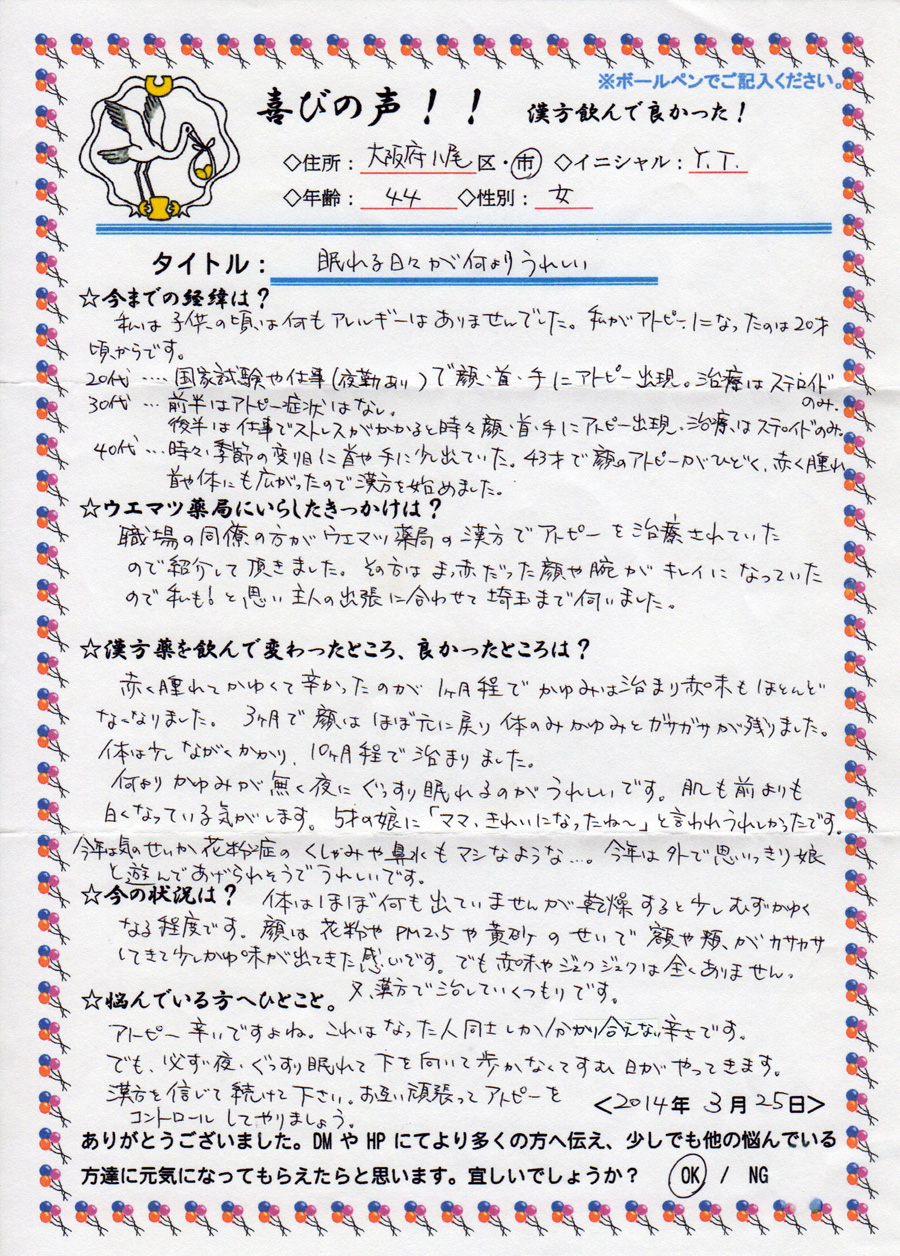 ※ボールペンでご記入ください。
喜びの声！！ 漢方飲んで良かった！
◇住所：大阪府八尾区・市 ◇イニシャル：Y.T.
◇年齢：44 ◇性別：女
タイトル： 眠れる日々が何よりうれしい
☆今までの経緯は？
私は子供の頃は何もアレルギーはありませんでした。私がアトピーになったのは20才
頃からです。
20代 …. 国家試験や仕事(夜勤あり)で顔・首・手にアトピー出現。治療はステロイド
のみ.
30代 … 前半はアトピー症状はなし。
後半は仕事でストレスがかかると時々顔・首・手にアトピー出現、治療はステロイドのみ.
40代 … 時々季節の変り目に首や手に少し出ていた。43才で顔のアトピーがひどく、赤く腫れ
首や体にも広がったので漢方を始めました。
☆ウエマツ薬局にいらしたきっかけは？
職場の同僚の方がウエマツ薬局の漢方でアトピーを治療されていた
ので紹介して頂きました。その方はまっ赤だった顔や腕がキレイになっていた
ので私も！と思い主人の出張に合わせて埼玉まで伺いました。
☆漢方薬を飲んで変わったところ、良かったところは？
赤く腫れてかゆくて辛かったのが1ヶ月程でかゆみは治まり赤味もほとんど
なくなりました。3ヶ月で顔はほぼ元に戻り体のみかゆみとガサガサが残りました。
体は少しながくかかり、10ヶ月程で治まりました。
何よりかゆみが無く夜にぐっすり眠れるのがうれしいです。肌も前よりも
白くなっている気がします。5才の娘に「ママ、きれいになったね〜」と言われうれしかったです。
今年は気のせいか花粉症のくしゃみや鼻水もマシなような…。今年は外で思いっきり娘
と遊んであげられそうでうれしいです。
☆今の状況は？ 体はほぼ何も出ていませんが乾燥すると少しむずがゆく
なる程度です。顔は花粉やPM2.5や黄砂のせいで額や頬がカサカサ
してきて少しかゆ味が出てきた感じです。でも赤味やジュクジュクは全くありません、
又、漢方で治していくつもりです。
☆悩んでいる方へひとこと。
アトピー辛いですよね。これはなった人同士しか分かり合えない辛さです。
でも、必ず夜、ぐっすり眠れて下を向いて歩かなくてすむ日がやってきます。
漢方を信じて続けて下さい。お互い頑張ってアトピーを
コントロールしてやりましょう。
＜2014年 3月25日＞
ありがとうございました。DMやHPにてより多くの方へ伝え、少しでも他の悩んでいる
方達に元気になってもらえたらと思います。宜しいでしょうか？ OK / NG